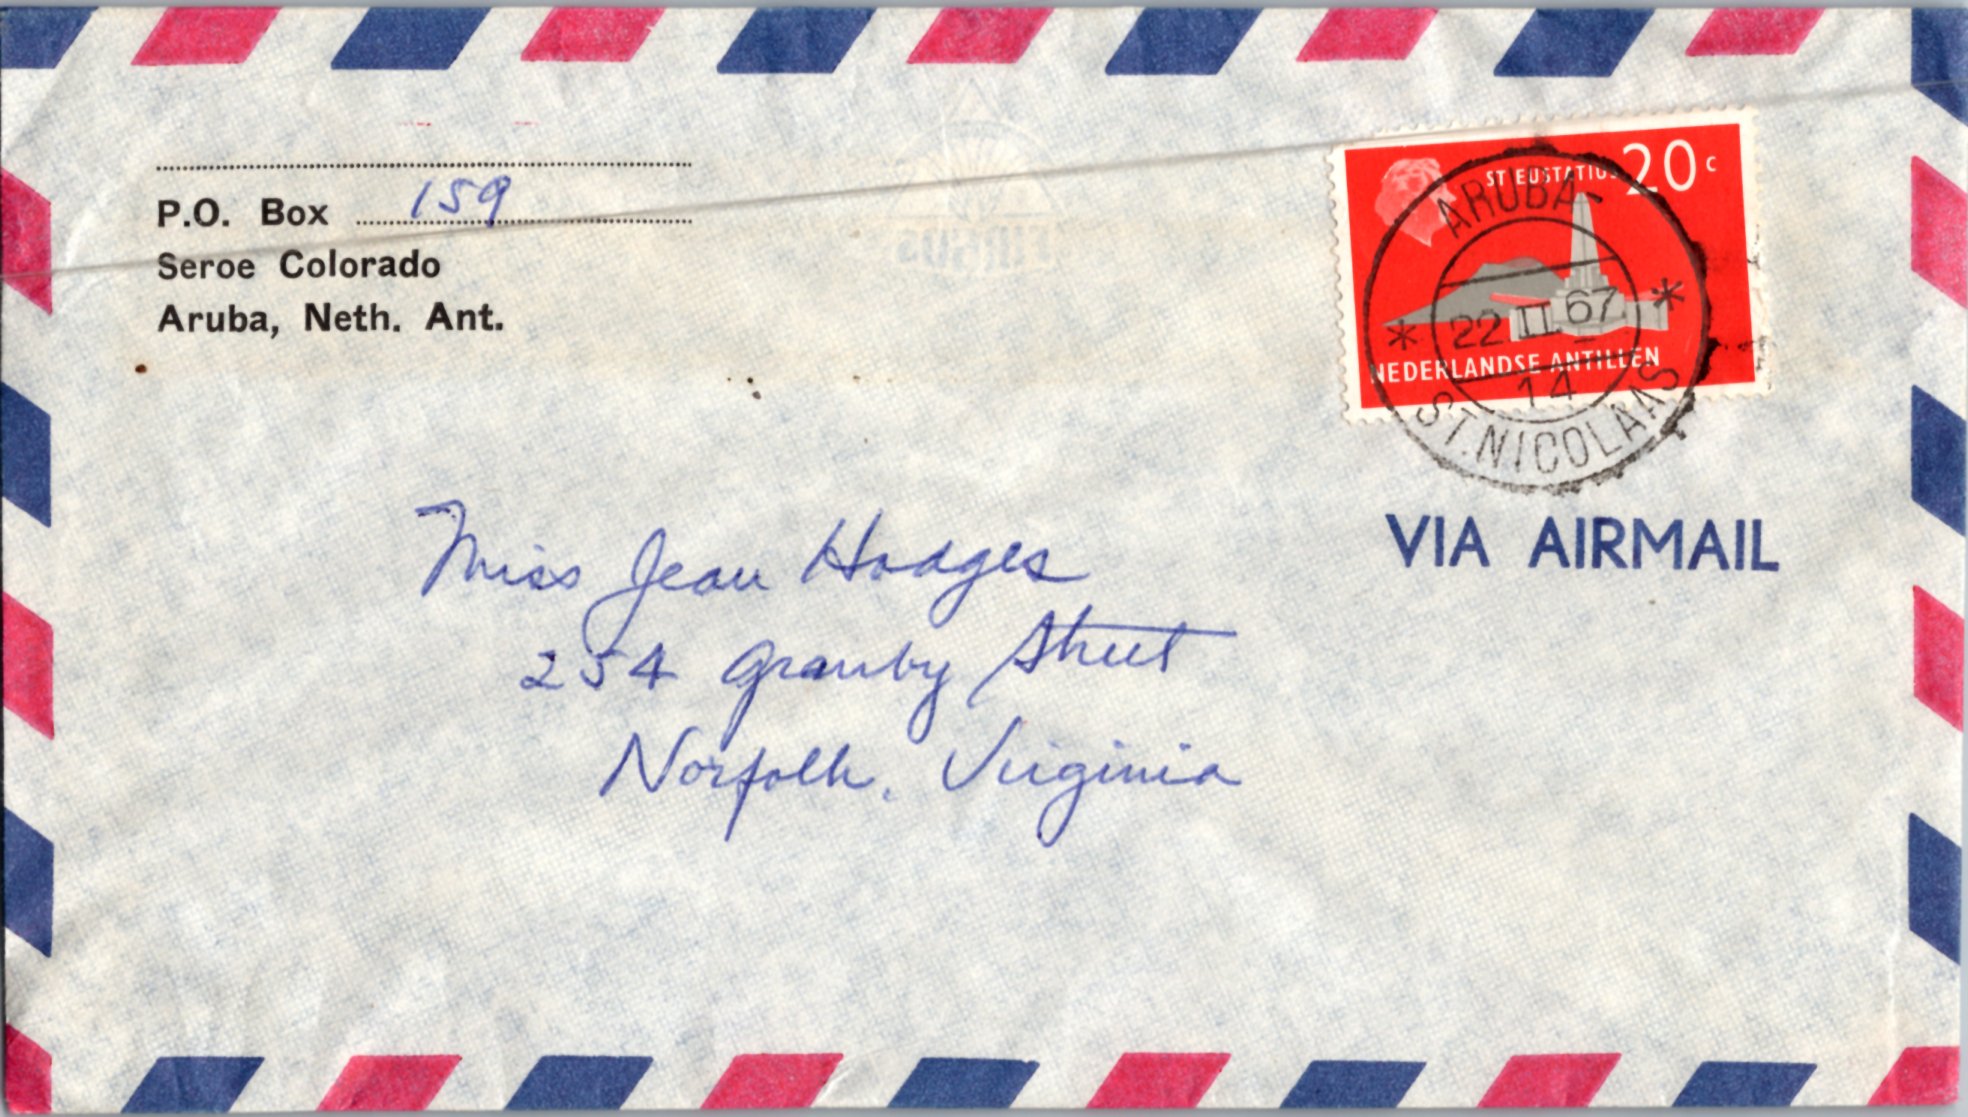 P.O. Box 159
Seroe Colorado
Aruba, Neth. Ant.
ST EUSTATIUS 20 c
NEDERLANDSE ANTILLEN
ARUBA-
* 22 II 67 *
14
ST. NICOLAAS
VIA AIRMAIL
Miss Jean Hodges
254 Granby Street
Norfolk, Virginia